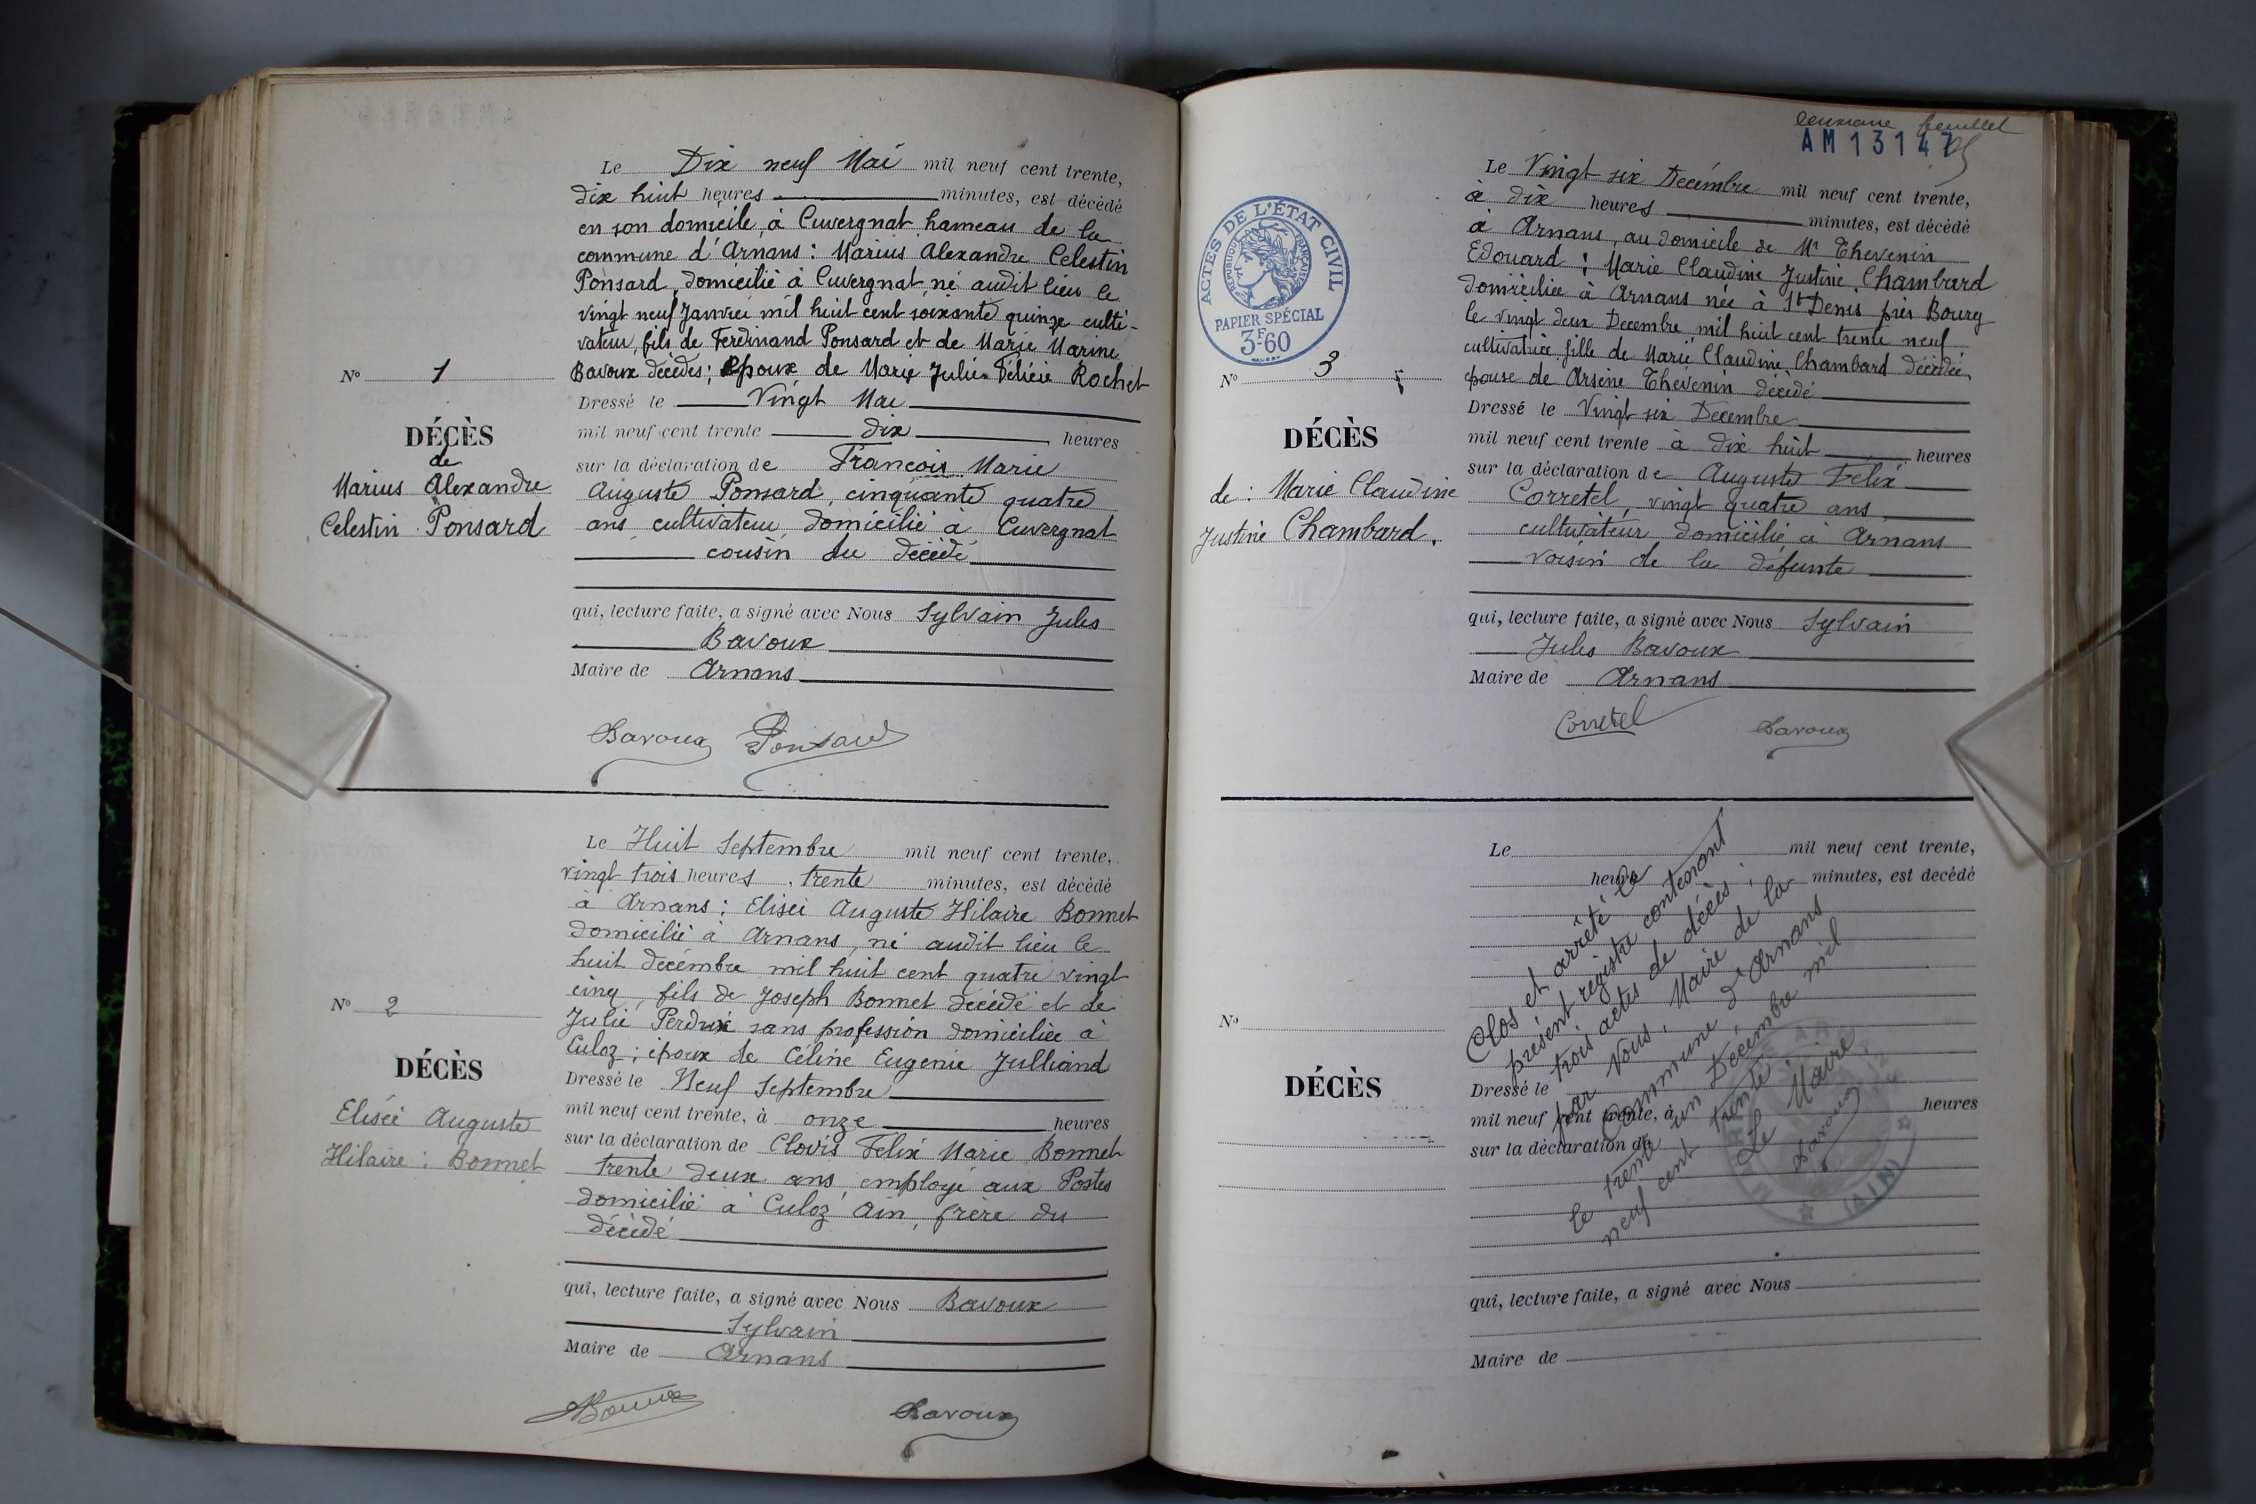 Le Dix neuf Mai mil neuf cent trente,
dix huit heures minutes, est décédé
en son domicile, à Cuvergnat hameau de la
commune d'Arnans : Marius Alexandre Celestin
Ponsard, domicilié à Cuvergnat, né audit lieu le
vingt neuf Janvier mil huit cent soixante quinze culti-
vateur, fils de Ferdinand Ponsard et de Marie Marine
Bavoux décédés ; époux de Marie Julie Félicie Rochet
Nº 1
Dressé le Vingt Mai
mil neuf cent trente dix heures
DÉCÈS
de
Marius Alexandre
Celestin Ponsard
sur la déclaration de François Marie
Auguste Ponsard, cinquante quatre
ans cultivateur domicilié à Cuvergnat
cousin du décédé
qui, lecture faite, a signé avec Nous Sylvain Jules
Bavoux
Maire de Arnans
Bavoux Ponsard
Le Huit Septembre mil neuf cent trente,
vingt trois heures, trente minutes, est décédé
à Arnans : Elisée Auguste Hilaire Bonnet
domicilié à Arnans, né audit lieu le
huit décembre mil huit cent quatre vingt
cinq, fils de Joseph Bonnet décédé et de
Julie Perdrix sans profession domiciliée à
Culoz ; époux de Céline Eugenie Julliand
Nº 2
DÉCÈS
Elisée Auguste
Hilaire : Bonnet
Dressé le Neuf Septembre
mil neuf cent trente, à onze heures
sur la déclaration de Clovis Felix Marie Bonnet
trente deux ans, employé aux Postes
domicilié à Culoz Ain, frère du
décédé
qui, lecture faite, a signé avec Nous Bavoux
Sylvain
Maire de Arnans
Bonnet Bavoux
deuxième feuillet
AM13147
ACTES DE L'ÉTAT CIVIL
RÉPUBLIQUE FRANÇAISE
PAPIER SPÉCIAL
3F60
Le Vingt six Decémbre mil neuf cent trente,
à dix heures minutes, est décédé
à Arnans, au domicile de Mr Thevenin
Edouard : Marie Claudine Justine Chambard
domiciliée à Arnans née à St Denis près Bourg
le vingt deux Decembre mil huit cent trente neuf
cultivatrice, fille de Marie Claudine Chambard décédée,
épouse de Arsène Thévenin décédé
Nº 3
DÉCÈS
de : Marie Claudine
Justine Chambard.
Dressé le Vingt six Decembre
mil neuf cent trente à dix huit heures
sur la déclaration de Auguste Félix
Corretel, vingt quatre ans
cultivateur domicilié à Arnans
voisin de la défunte
qui, lecture faite, a signé avec Nous Sylvain
Jules Bavoux
Maire de Arnans
Corretel Bavoux
Le mil neuf cent trente,
heures minutes, est décédé
Nº
DÉCÈS
Dressé le
mil neuf cent trente, à heures
sur la déclaration de
Clos et arrêté le
présent registre contenant
trois actes de décès ;
par Nous, Maire de la
commune d'Arnans
le trente un Décembre mil
neuf cent trente
Le Maire,
Bavoux
(AIN)
qui, lecture faite, a signé avec Nous
Maire de